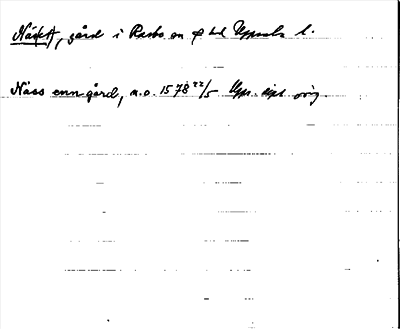 Näset, gård i Rasbo sn o hd Uppsala l.
Näss enn gård, a.o. 1578 22/5 Upps. dipl orig.